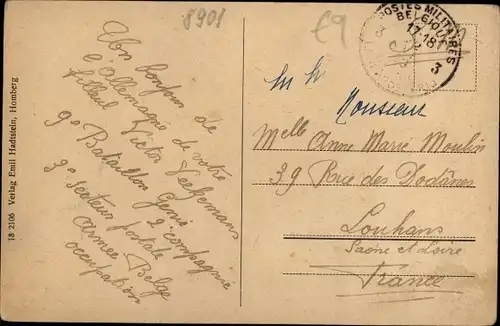 8901
€9
POSTES MILITAIRES
BELGIQUE
17-18
3
18 2106 Verlag Emil Hadtstein, Homberg
Un bonjour de
l'Allemagne de votre
filleul Victor
9e Bataillon Génie
2e compagnie
3e secteur postale
armée Belge
occupation
Monsieur
Melle Anne Marie Moulin
39 Rue des Dodânes
Louhans
Saône et Loire
France